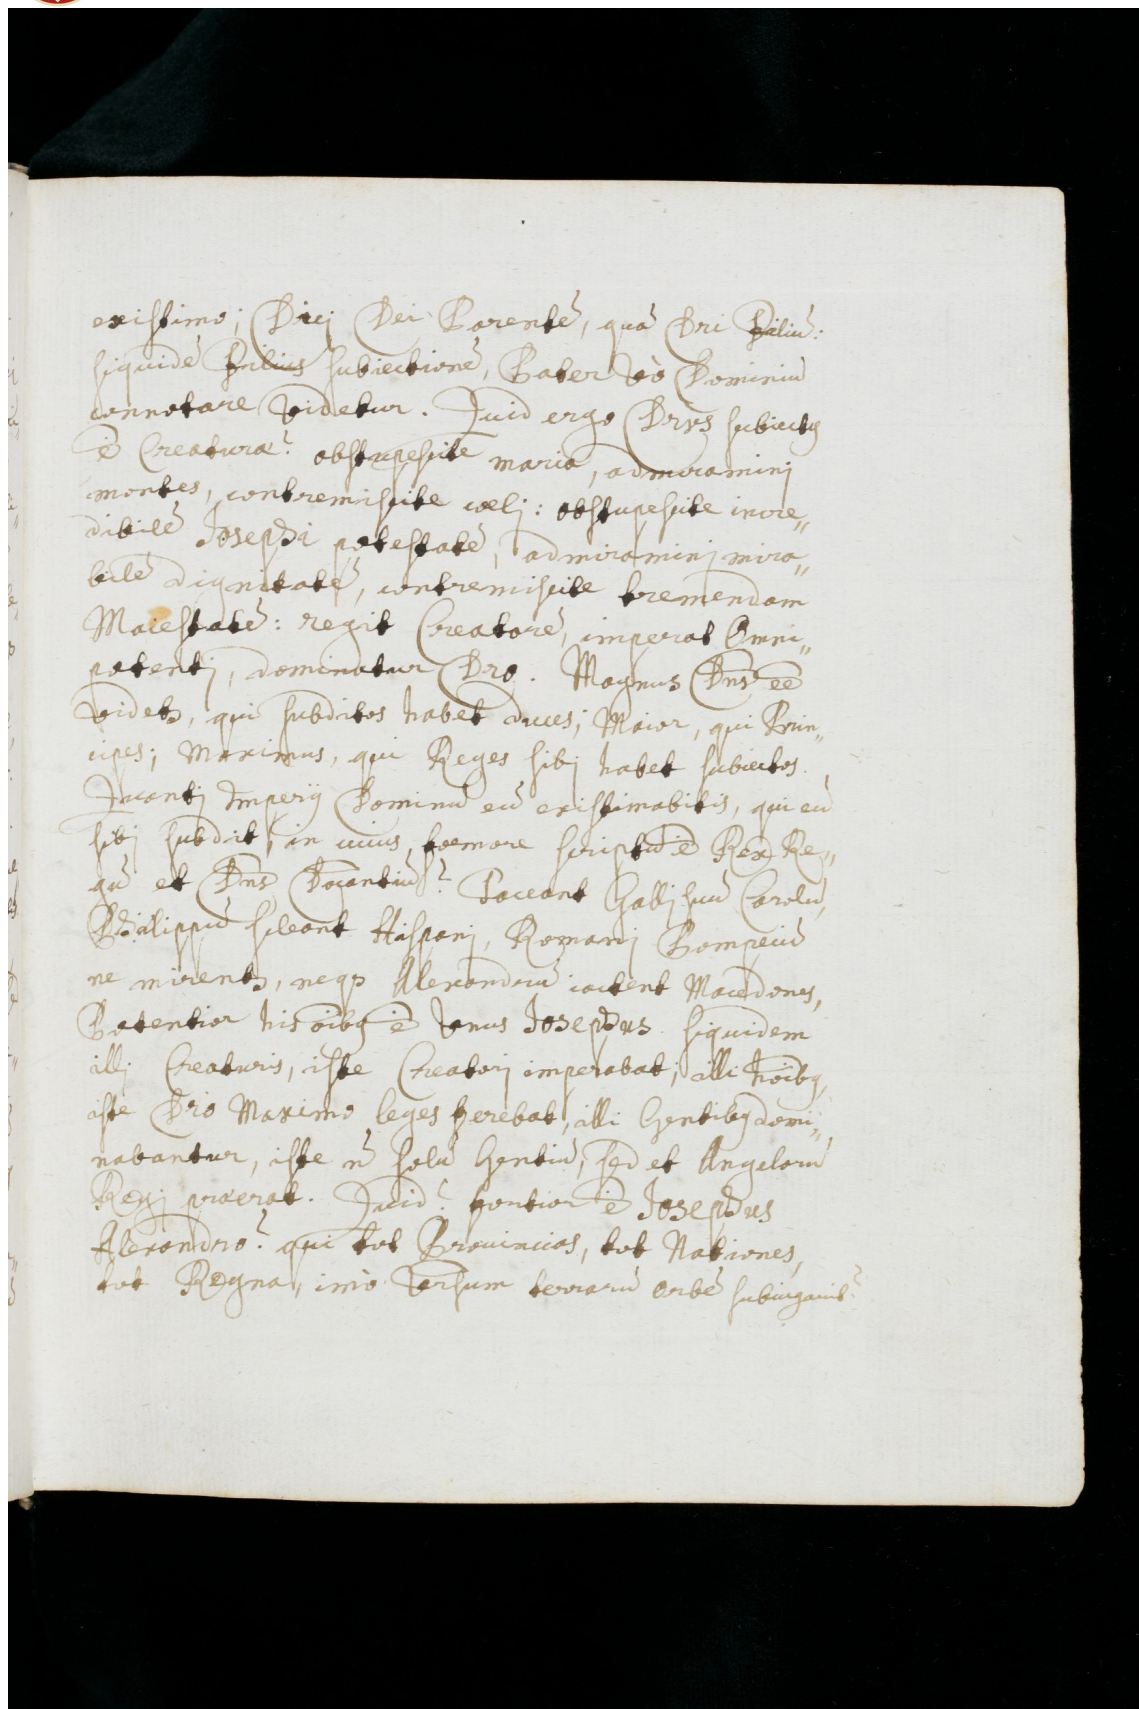 existimo; Dici Dei Parentē, quā Dei Filiū:
siquidē Filius subiectionē, Pater vò Dominiū
connotare videtur. Quid ergo Deus subiectus
ē Creaturæ? obstupescite maria, admiraminj
montes, contremiscite cœlj: obstupescite incre„
dibilē Josephi potestatē, admiraminj mira„
bilē dignitatē, contremiscite tremendam
Maiestatē: regit Creatorē, imperat Omni„
potentj, dominatur Deo. Magnus Dns eē
videtr, qui subditos habet duces; Maior, qui Prin„
cipes; Maximus, qui Reges sibj habet subiectos.
Quantj Imperij Dominū eū existimabitis, qui eū
sibj subdit, in cuius foemore scriptū ē Rex Re„
gū et Dns Dōantiū? Taceant Gallj suū Carolū,
Philippū sileant Hispanj, Romanj Pompeiū
ne mirentr, neqȝ Alexandrū iactent Macedones,
Potentior his oībꝫ ē vnus Josephus siquidem
illj Creaturis, iste Creatorj imperabat; illi hoībꝫ,
iste Deo Maximo leges ferebat, illi Gentibꝫ domi„
nabantur, iste n̄ solū Gentiū, sed et Angelorū
Regj præerat. Quid? fortior ē Josephus
Alexandro? qui tot Prouincias, tot Nationes,
tot Regna, imò versum terrarū orbē subiugauit?